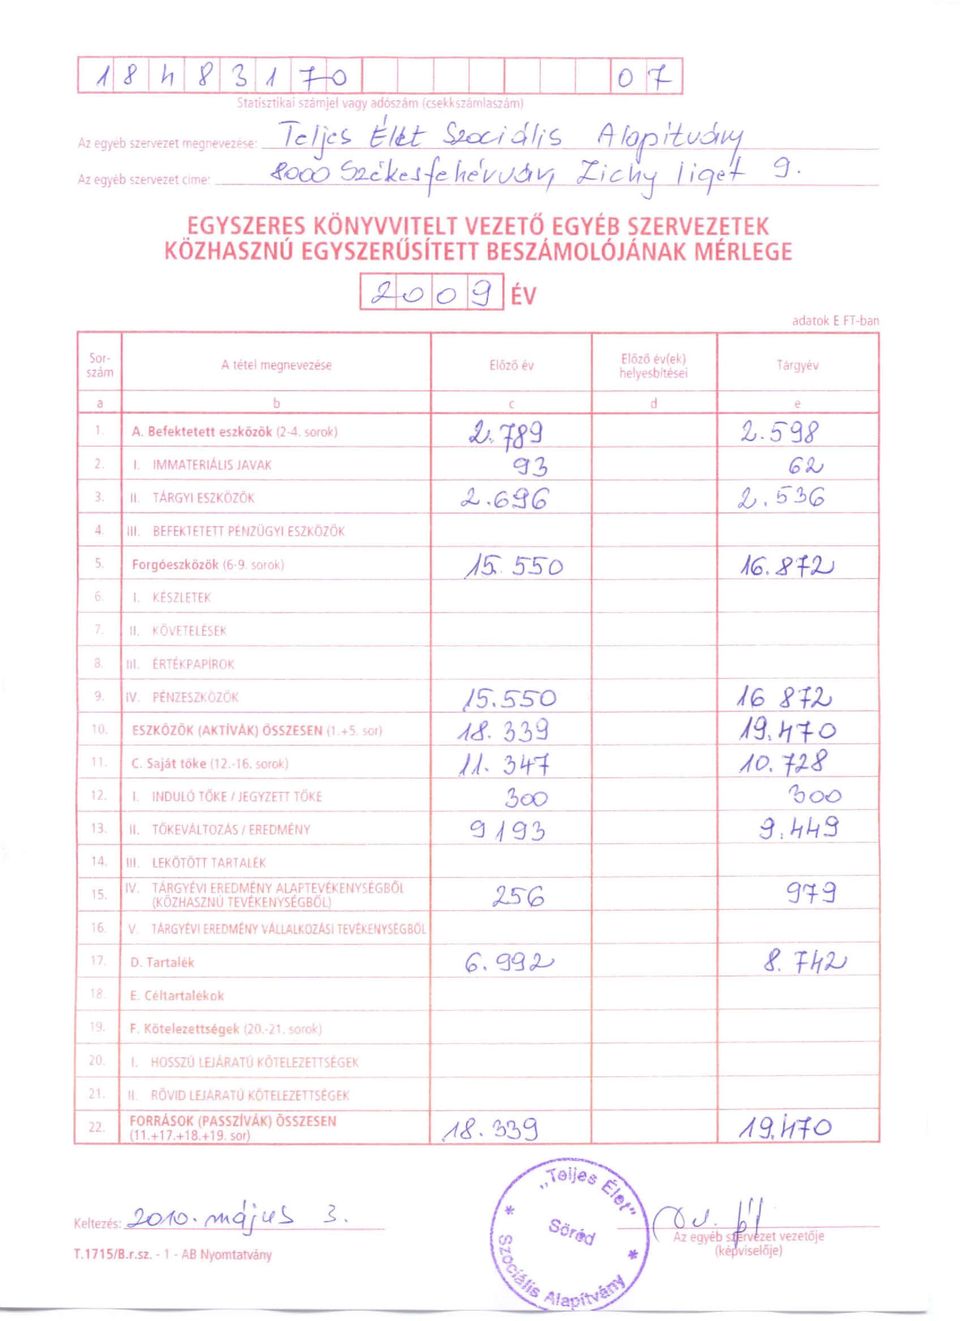 18483170 07
Statisztikai számjel vagy adószám (csekkszámlaszám)
Az egyéb szervezet megnevezése: Teljes Élet Szociális Alapítvány
Az egyéb szervezet címe: 8000 Székesfehérvár, Zichy liget 9.
EGYSZERES KÖNYVVITELT VEZETŐ EGYÉB SZERVEZETEK
KÖZHASZNÚ EGYSZERŰSÍTETT BESZÁMOLÓJÁNAK MÉRLEGE
2009 ÉV
adatok E FT-ban
Sor-szám A tétel megnevezése Előző év Előző év(ek) helyesbítései Tárgyév
a b c d e
1. A. Befektetett eszközök (2-4. sorok) 2.789 2.598
2. I. IMMATERIÁLIS JAVAK 93 62
3. II. TÁRGYI ESZKÖZÖK 2.696 2.536
4. III. BEFEKTETETT PÉNZÜGYI ESZKÖZÖK
5. Forgóeszközök (6-9. sorok) 15.550 16.872
6. I. KÉSZLETEK
7. II. KÖVETELÉSEK
8. III. ÉRTÉKPAPÍROK
9. IV. PÉNZESZKÖZÖK 15.550 16 872
10. ESZKÖZÖK (AKTÍVÁK) ÖSSZESEN (1.+5. sor) 18.339 19.470
11. C. Saját tőke (12.-16. sorok) 11.347 10.728
12. I. INDULÓ TŐKE / JEGYZETT TŐKE 300 300
13. II. TŐKEVÁLTOZÁS / EREDMÉNY 9193 9.449
14. III. LEKÖTÖTT TARTALÉK
15. IV. TÁRGYÉVI EREDMÉNY ALAPTEVÉKENYSÉGBŐL (KÖZHASZNÚ TEVÉKENYSÉGBŐL) 256 979
16. V. TÁRGYÉVI EREDMÉNY VÁLLALKOZÁSI TEVÉKENYSÉGBŐL
17. D. Tartalék 6.992 8.742
18. E. Céltartalékok
19. F. Kötelezettségek (20.-21. sorok)
20. I. HOSSZÚ LEJÁRATÚ KÖTELEZETTSÉGEK
21. II. RÖVID LEJÁRATÚ KÖTELEZETTSÉGEK
22. FORRÁSOK (PASSZÍVÁK) ÖSSZESEN (11.+17.+18.+19. sor) 18.339 19.470
„Teljes Élet" Szociális Alapítvány
Söréd
Keltezés: 2010. május 3.
Az egyéb szervezet vezetője
(képviselője)
T.1715/B.r.sz. - 1 - AB Nyomtatvány